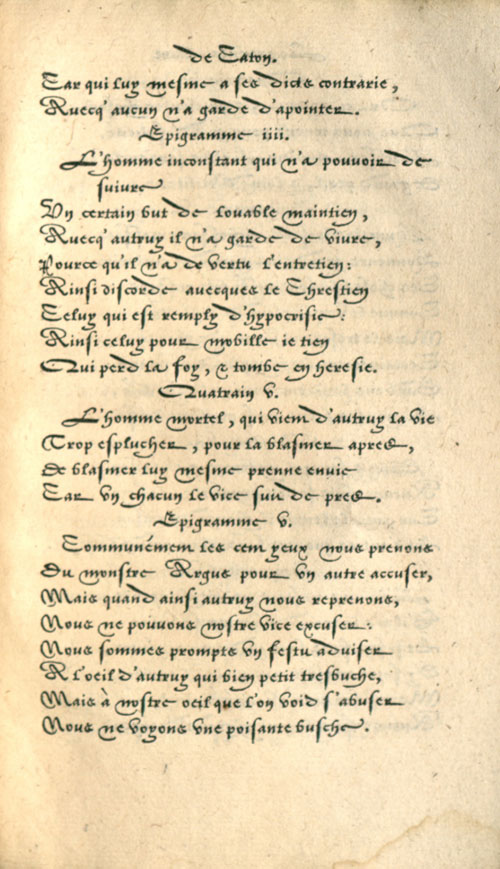 de Caton.
Car qui luy mesme a ses dicts contrarie,
Avecq' aucun n'a garde d'apointer.
Epigramme iiii.
L'homme inconstant qui n'a pouvoir de
suivre
Vn certain but de louable maintien,
Avecq' autruy il n'a garde de vivre,
Pource qu'il n'a de vertu l'entretien:
Ainsi discorde avecques le Chrestien
Celuy qui est remply d'hypocrisie:
Ainsi celuy pour mobille ie tien
Qui perd la foy, & tombe en heresie.
Quatrain v.
L'homme mortel, qui vient d'autruy la vie
Trop esplucher, pour la blasmer apres,
De blasmer luy mesme prenne envie
Car vn chacun le vice suit de pres.
Epigramme v.
Communément les cent yeux nous prenons
Du monstre Argus pour vn autre accuser,
Mais quand ainsi autruy nous reprenons,
Nous ne pouvons nostre vice excuser:
Nous sommes prompts vn festu adviser
A l'oeil d'autruy qui bien petit tresbuche,
Mais à nostre oeil que l'on void s'abuser
Nous ne voyons vne poisante busche.